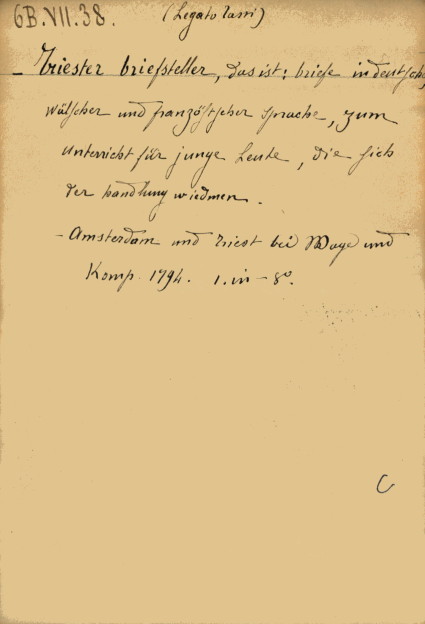 6B.VII.38.
(Legato Rari)
Triester briefsteller, das ist: briefe in deutscher,
wälscher und französischer Sprache, zum
unterricht für junge Leute, die sich
der handlung wiedmen.
- Amsterdam und Triest bei Wage und
Komp. 1794. 1. in - 8º.
C